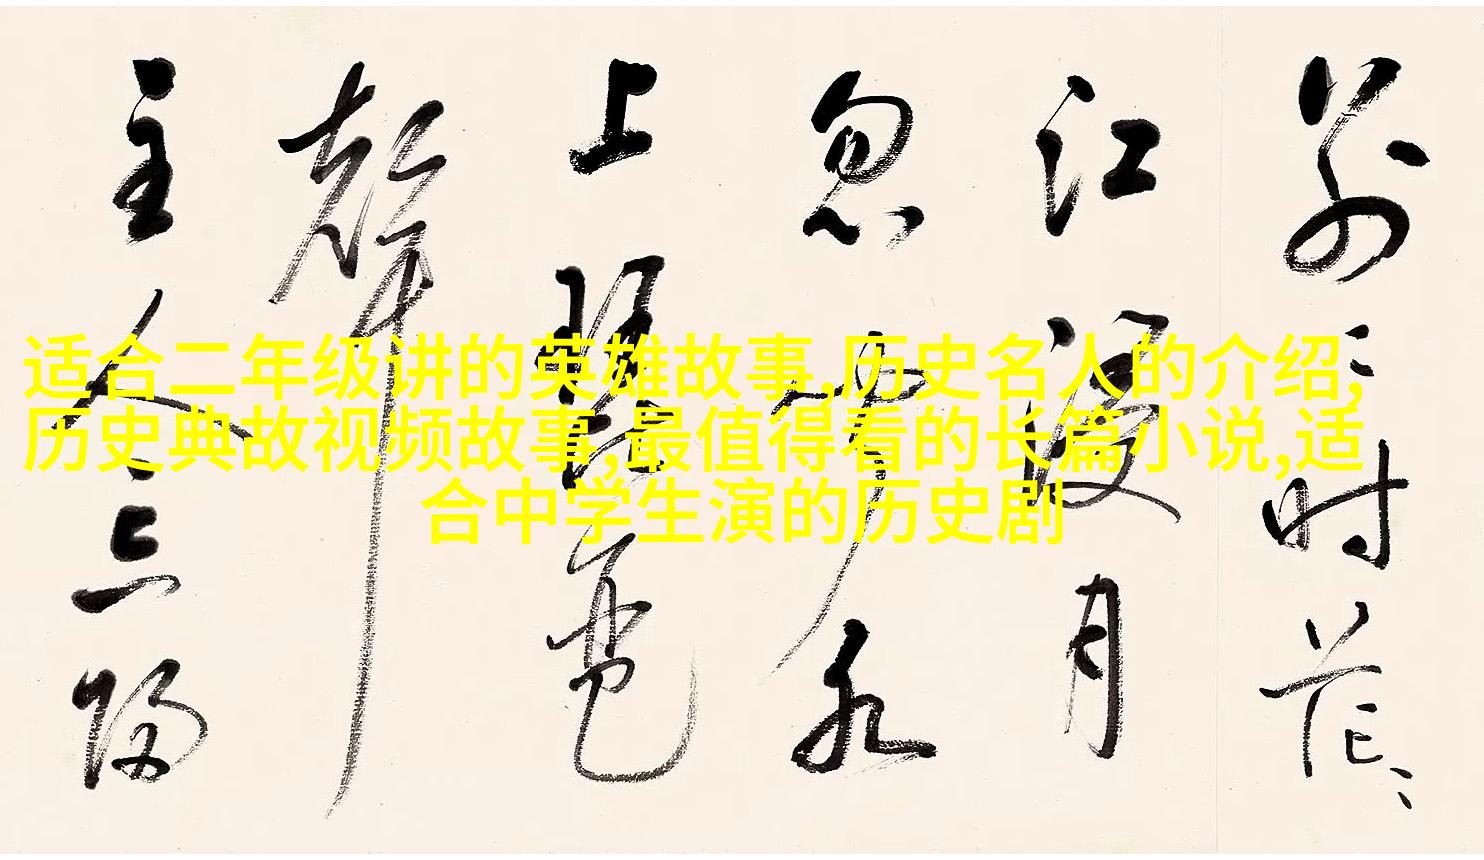 别时茫〻
江浸月
忽闻水
上琵琶
聲
主人忘歸
适合二年级讲的英雄故事,历史名人的介绍,
历史典故视频故事,最值得看的长篇小说,适
合中学生演的历史剧